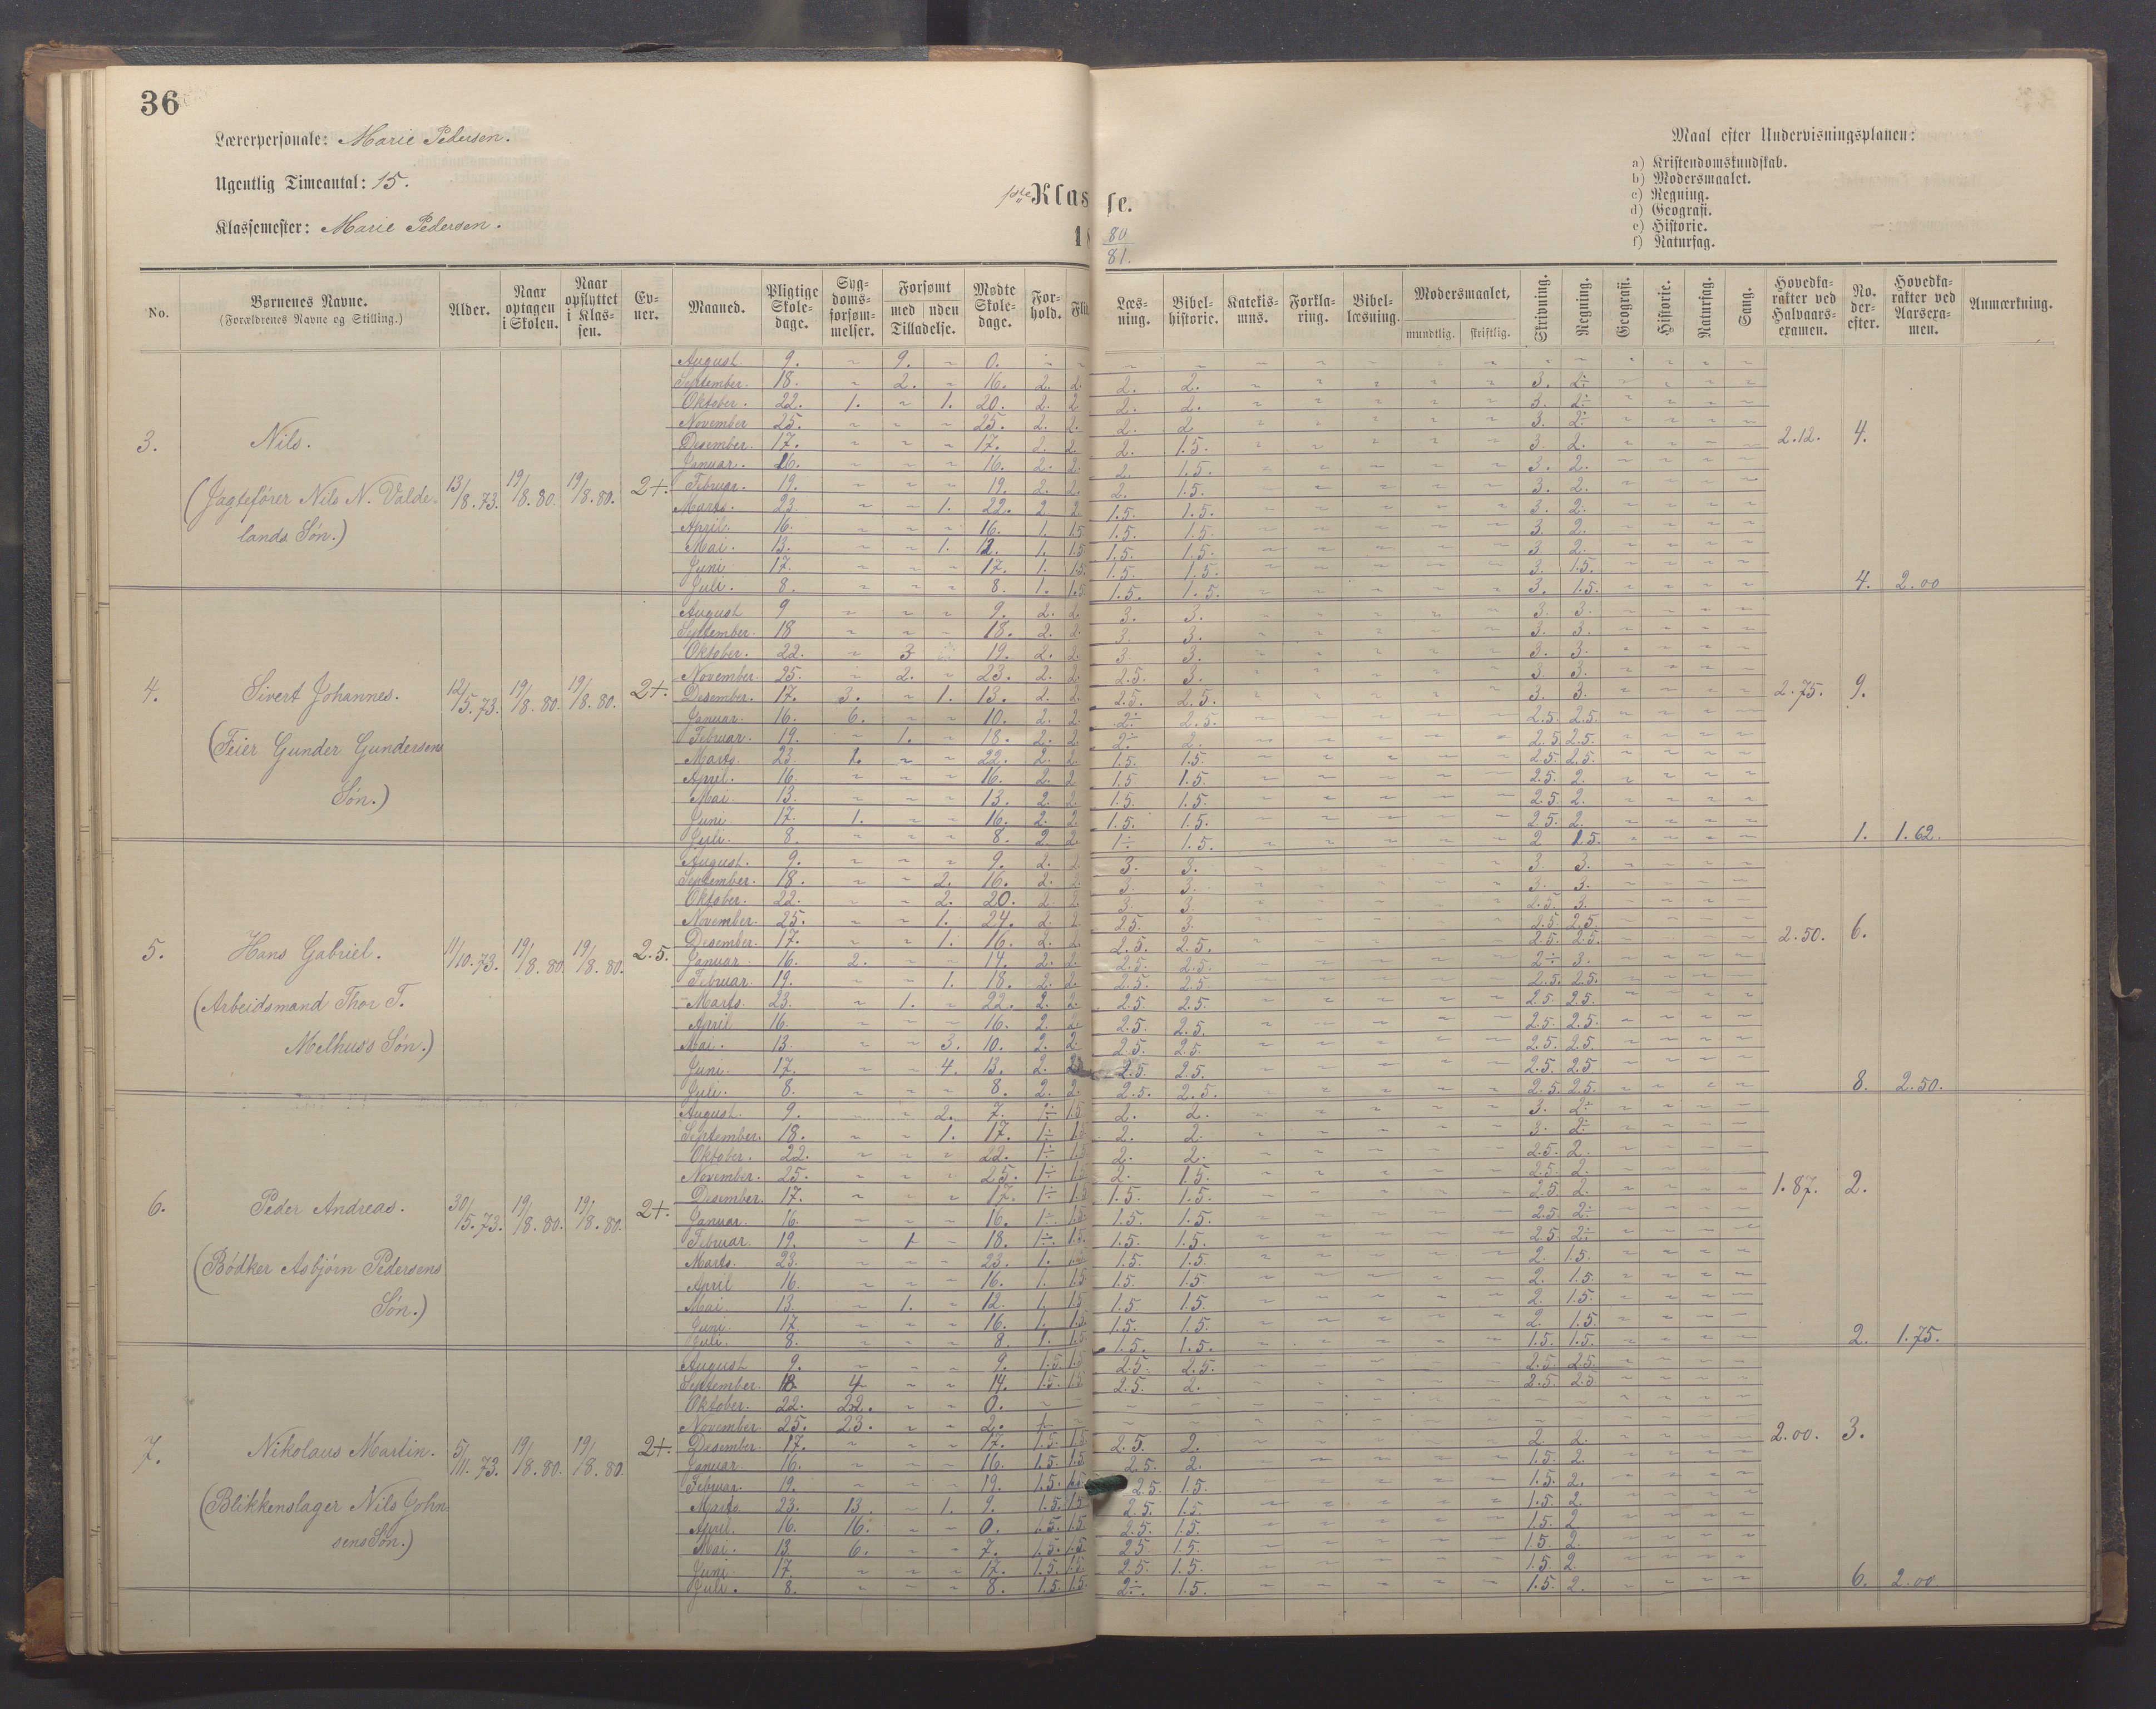 36
Lærerpersonale: Marie Pedersen.
Ugentlig Timeantal: 15.
Klassemester: Marie Pedersen.
1ste Klasse.
18 80/81.
Maal efter Undervisningsplanen:
a) Kristendomskundskab.
b) Modersmaalet.
c) Regning.
d) Geografi.
e) Historie.
f) Naturfag.
No. | Børnenes Navne. (Forældrenes Navne og Stilling.) | Alder. | Naar optagen i Skolen. | Naar opflyttet i Klassen. | Evner. | Maaned. | Pligtige Skoledage. | Sygdomsforsømmelser. | Forsømt med / uden Tilladelse. | Mødte Skoledage. | Forhold. | Flid | Læsning. | Bibelhistorie. | Katekismus. | Forklaring. | Bibellæsning. | Modersmaalet, mundtlig. skriftlig. | Skrivning. | Regning. | Geografi. | Historie. | Naturfag. | Sang. | Hovedkarakter ved Halvaarsexamen. | No. derefter. | Hovedkarakter ved Aarsexamen. | Anmærkning.
3. Nils. (Jagtefører Nils N. Valdelands Søn.) 13/8.73. 19/8.80. 19/8.80. 2+. 2.12. 4. 4. 2.00
August 9. ~ 9. ~ 0.
September. 18. ~ 2. ~ 16. 2. 2. 2. 2. 3. 2÷
Oktober. 22. 1. ~ 1. 20. 2. 2. 2. 2. 3. 2÷
November 25. ~ ~ ~ 25. 2. 2. 2. 2. 3. 2÷
Desember. 17. ~ ~ ~ 17. 2. 2. 2. 1.5. 3. 2.
Januar. 16. ~ ~ ~ 16. 2. 2. 2. 1.5. 3. 2.
Februar. 19. ~ ~ ~ 19. 2. 2. 2. 1.5. 3. 2.
Marts. 23. ~ ~ 1. 22. 2. 2. 1.5. 1.5. 3. 2.
April. 16. ~ ~ ~ 16. 1. 1.5 1.5. 1.5. 3. 2.
Mai. 13. ~ ~ 1. 12. 1. 1.5 1.5. 1.5. 3. 2.
Juni 17. ~ ~ ~ 17. 1. 1.5. 1.5. 1.5. 3. 1.5.
Juli. 8. ~ ~ ~ 8. 1. 1.5 1.5. 1.5. 3. 1.5.
4. Sivert Johannes. (Feier Gunder Gundersens Søn.) 12/5.73. 19/8.80. 19/8.80. 2+. 2.75. 9. 1. 1.62.
August 9 ~ ~ ~ 9. 2. 2. 3. 3. 3. 3.
September. 18 ~ ~ ~ 18. 2. 2. 3. 3. 3. 3.
Oktober. 22. ~ 3 19. 2. 2. 3. 3. 3. 3.
November 25. ~ 2. ~ 23. 2. 2. 2.5. 3. 3. 3.
Desember. 17. 3. ~ 1. 13. 2. 2. 2.5. 2.5. 3. 3.
Januar. 16. 6. ~ ~ 10. 2. 2. 2÷ 2.5. 2.5. 2.5.
Februar. 19. ~ 1. ~ 18. 2. 2. 2÷ 2. 2.5. 2.5.
Marts. 23 1. ~ ~ 22. 2. 2. 1.5. 1.5. 2.5. 2.5.
April. 16. ~ ~ ~ 16. 2. 2 1.5 1.5. 2.5. 2.
Mai. 13. ~ ~ ~ 13. 2. 2. 1.5. 1.5. 2.5. 2.
Juni 17. 1. ~ ~ 16. 2. 2. 1.5. 1.5. 2.5. 2.
Juli. 8. ~ ~ ~ 8. 2. 2. 1÷ 1.5. 2 1.5.
5. Hans Gabriel. (Arbeidsmand Thor T. Melhus's Søn.) 11/10.73. 19/8.80. 19/8.80. 2.5. 2.50. 6. 8. 2.50.
August. 9. ~ ~ ~ 9. 2. 2. 3. 3. 3. 3.
September. 18. ~ ~ 2. 16. 2. 2. 3. 3. 3. 3.
Oktober. 22. ~ ~ 2. 20. 2. 2. 3. 3. 2.5. 3.
November. 25. ~ ~ 1. 24. 2. 2. 2.5. 3. 2.5. 2.5.
Desember. 17. ~ ~ 1. 16. 2. 2. 2.5. 2.5. 2.5. 2.5.
Januar. 16. 2. ~ ~ 14. 2. 2. 2.5. 2.5. 2÷ 3.
Februar. 19. ~ ~ 1. 18. 2. 2. 2.5. 2.5 2.5. 2.5.
Marts. 23. ~ 1. ~ 22. 2. 2. 2.5. 2.5 2.5. 2.5.
April 16. ~ ~ ~ 16. 2. 2. 2.5. 2.5. 2.5. 2.5.
Mai. 13. ~ ~ 3. 10. 2. 2. 2.5. 2.5. 2.5. 2.5.
Juni. 17. ~ ~ 4. 13. 2. 2. 2.5. 2.5. 2.5. 2.5
Juli. 8. ~ ~ ~ 8. 2. 2. 2.5. 2.5. 2.5. 2.5.
6. Peder Andreas. (Bødker Asbjørn Pedersens Søn.) 30/5.73. 19/8.80. 19/8.80. 2+. 1.87. 2. 2. 1.75.
August. 9. ~ ~ 2. 7. 1÷ 1.5 2. 2. 3. 2÷
September. 18. ~ ~ 1. 17. 1÷ 1.5 2. 2. 3. 2÷
Oktober. 22. ~ ~ ~ 22. 1÷ 1.5 2. 2. 2.5. 2.
November. 25. ~ ~ ~ 25. 1÷ 2. 1.5. 2.5. 2.
Desember. 17. ~ ~ ~ 17. 1÷ 1.5 1.5. 1.5. 2.5. 2.
Januar. 16. ~ ~ ~ 16. 1÷ 1.5. 1.5. 1.5. 2.5. 2÷
Februar. 19. ~ 1 ~ 18. 1÷ 1.5. 1.5. 1.5. 2.5. 2÷
Marts. 23. ~ ~ ~ 23. 1. 1.5. 1.5. 2. 1.5.
April 16. ~ ~ ~ 16. 1. 1.5 1.5. 1.5 2. 1.5.
Mai. 13. ~ 1. ~ 12. 1. 1.5 1.5. 1.5. 2. 1.5.
Juni. 17. ~ ~ ~ 16. 1. 1.5. 1.5. 1.5. 2. 1.5.
Juli. 8. ~ ~ ~ 8. 1. 1.5. 1.5. 1.5. 1.5. 1.5.
7. Nikolaus Martin. (Blikkenslager Nils Johnsens Søn.) 5/11.73. 19/8.80. 19/8.80. 2+. 2.00. 3. 6. 2.00.
August 9. ~ ~ ~ 9. 1.5. 1.5 2.5. 2.5. 2.5. 2.5.
September. 18. 4 ~ ~ 14. 1.5. 1.5 2.5. 2. 2.5. 2.5
Oktober. 22. 22. ~ ~ 0.
November. 25. 23. ~ ~ 2.
Desember. 17. ~ ~ ~ 17. 1.5. 1.5 2.5. 2. 2. 2.
Januar. 16. ~ ~ ~ 16. 1.5. 1.5. 2.5. 2. 1.5. 2.
Februar. 19. ~ ~ ~ 19. 1.5. 1.5. 2.5. 1.5. 1.5. 2.
Marts. 23. 13. ~ 1. 9. 1.5. 1.5 2.5. 1.5. 1.5. 2.
April. 16. 16. ~ ~ 0. 1.5. 1.5 2.5. 1.5. 1.5. 2.
Mai. 13. 6. ~ ~ 7. 1.5. 1.5. 2.5 1.5. 1.5 2.
Juni 17. ~ ~ ~ 17. 1.5. 1.5. 2.5. 1.5. 1.5 2.
Juli. 8. ~ ~ ~ 8. 1.5. 1.5. 2÷ 1.5. 1.5. 2.